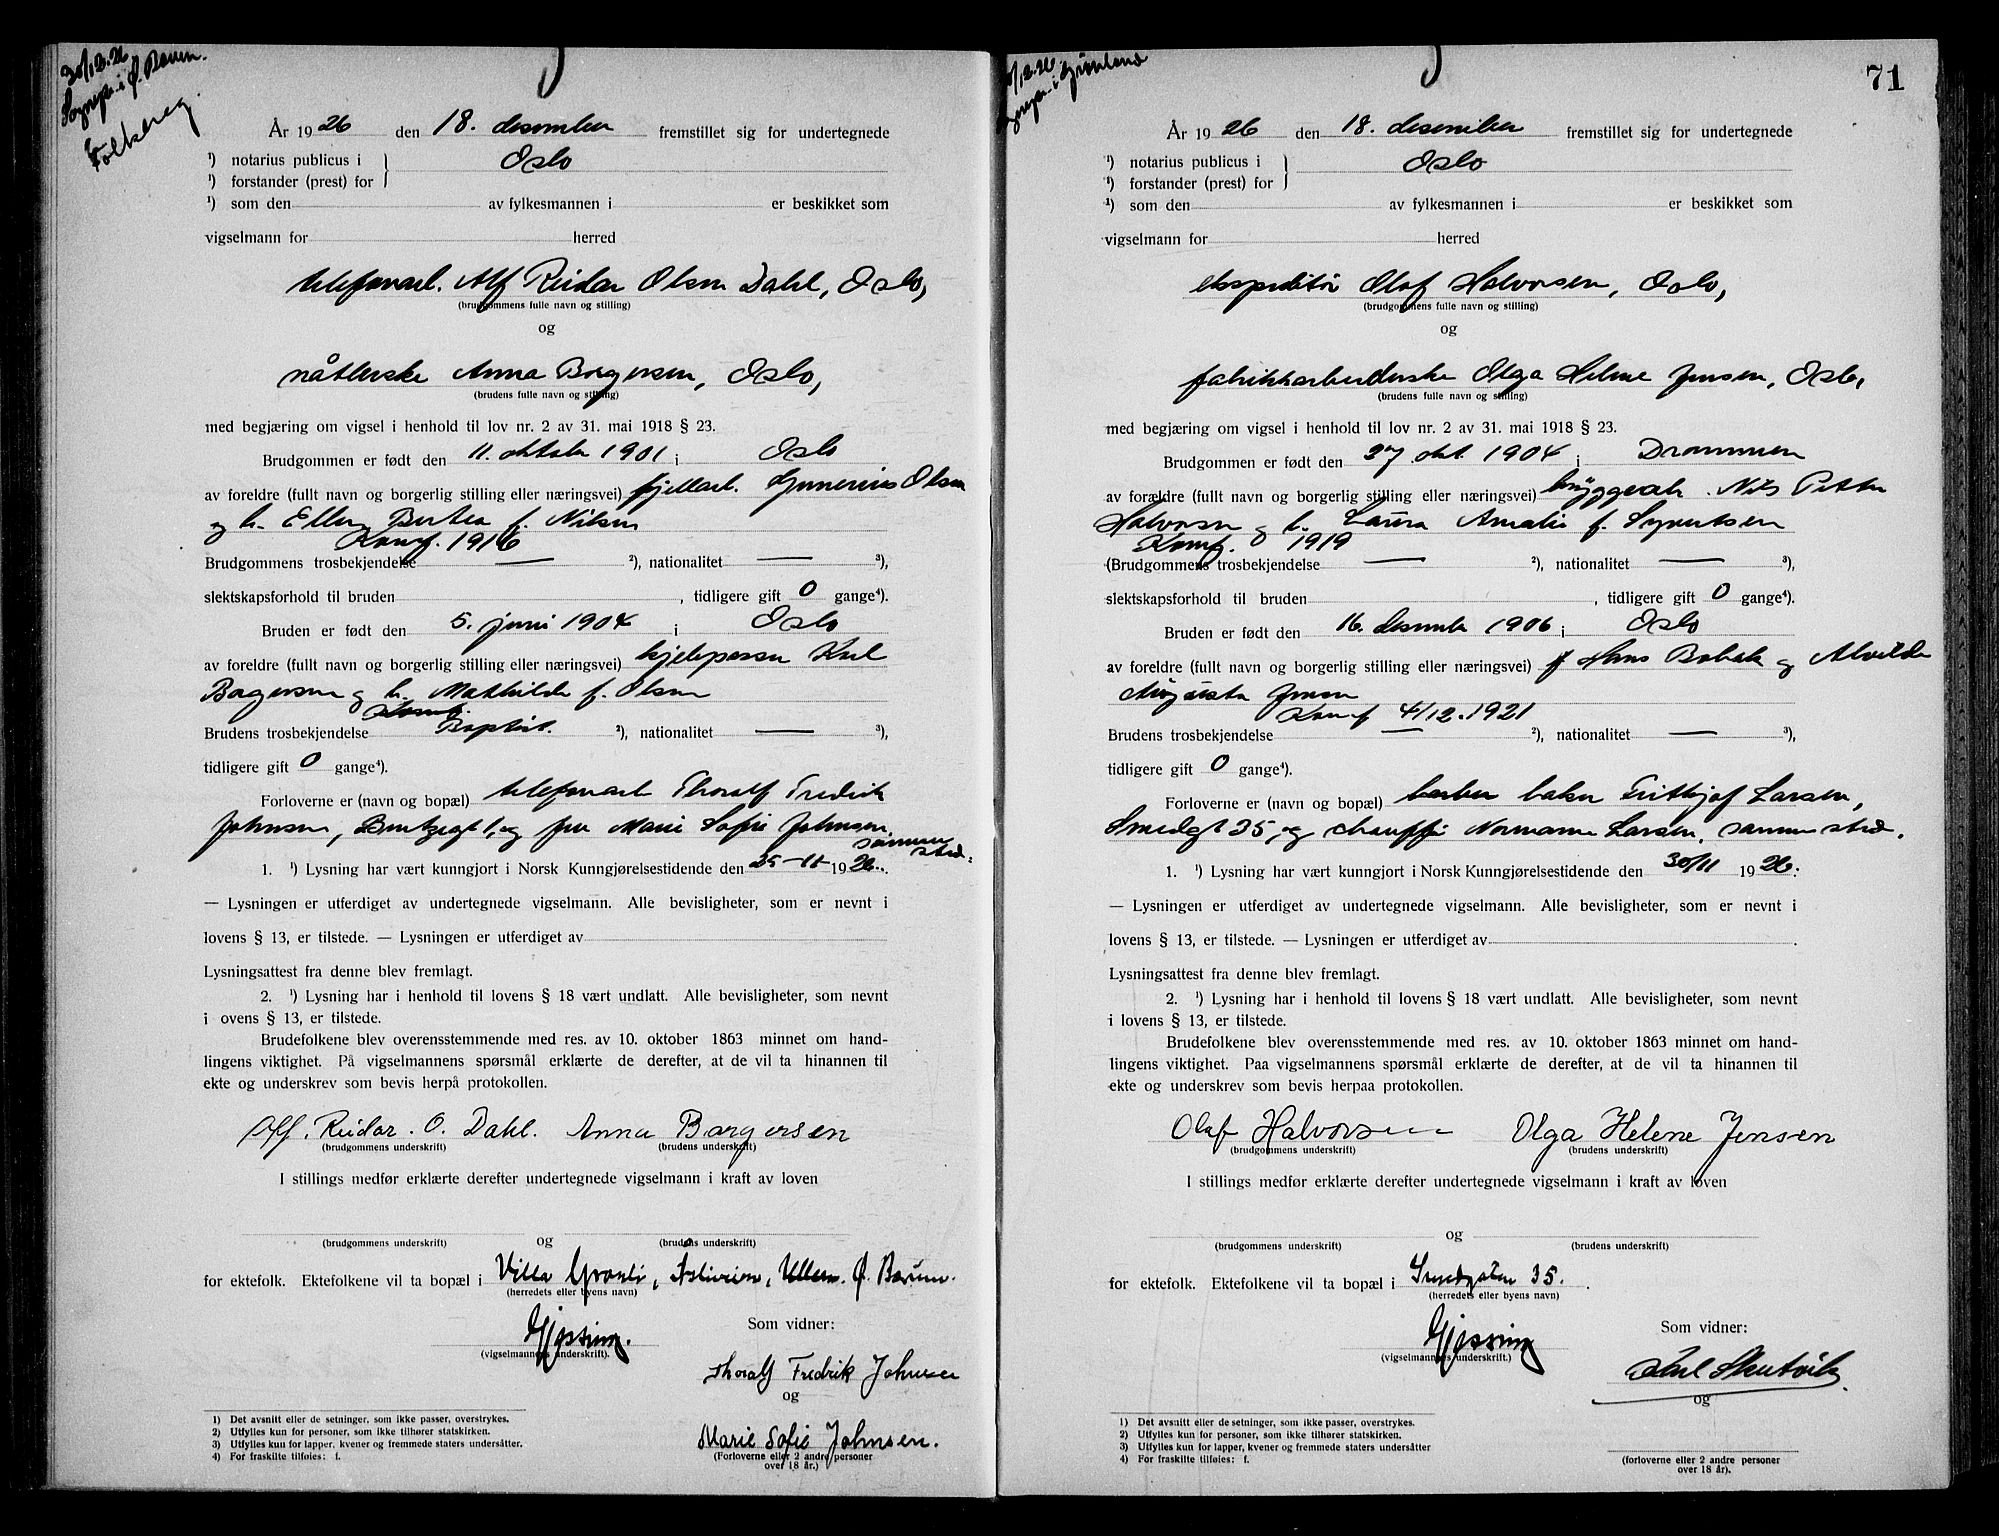 30/12.26
Sognepr. i Ø. Bærum.
Folkereg.
År 1926 den 18. desember fremstillet sig for undertegnede
¹) notarius publicus i } Oslo
¹) forstander (prest) for
¹) som den av fylkesmannen i er beskikket som
vigselmann for herred
telefonarb. Alf Reidar Olsen Dahl, Oslo,
(brudgommens fulle navn og stilling)
og
nåtlerske Anna Borgersen, Oslo,
(brudens fulle navn og stilling)
med begjæring om vigsel i henhold til lov nr. 2 av 31. mai 1918 § 23.
Brudgommen er født den 11. oktober 1901 i Oslo
av foreldre (fullt navn og borgerlig stilling eller næringsvei) fjellarb. Gunerius Olsen
og h. Ellen Bertea f. Nilsen
Konf. 1916
Brudgommens trosbekjendelse — ²), nationalitet — ³),
slektskapsforhold til bruden , tidligere gift 0 gange⁴).
Bruden er født den 5. juni 1904 i Oslo
av foreldre (fullt navn og borgerlig stilling eller næringsvei) kjelepasser Karl
Borgersen og h. Mathilde f. Olsen
Konf.
Brudens trosbekjendelse Baptist. ²), nationalitet — ³),
tidligere gift 0 gange⁴).
Forloverne er (navn og bopæl) telefonarb Thoralf Fredrik
Johnsen, 1, og fru Marie Sofie Johnsen,
sammesteds
1. ¹) Lysning har vært kunngjort i Norsk Kunngjørelsestidende den 25-11- 1926.
— Lysningen er utferdiget av undertegnede vigselmann. Alle bevisligheter, som er nevnt i
lovens § 13, er tilstede. — Lysningen er utferdiget av
Lysningsattest fra denne blev fremlagt.
2. ¹) Lysning har i henhold til lovens § 18 vært undlatt. Alle bevisligheter, som nevnt
i ovens § 13, er tilstede.
Brudefolkene blev overensstemmende med res. av 10. oktober 1863 minnet om hand-
lingens viktighet. På vigselmannens spørsmål erklærte de derefter, at de vil ta hinannen til
ekte og underskrev som bevis herpå protokollen.
Alf. Reidar. O. Dahl. Anna Borgersen
(brudgommens underskrift) (brudens underskrift)
I stillings medfør erklærte derefter undertegnede vigselmann i kraft av loven
og
(brudgommens underskrift) (brudens underskrift)
for ektefolk. Ektefolkene vil ta bopæl i Villa Granli, Åsliveien, Ullern. Ø. Bærum.
(herredets eller byens navn)
Gjessing.
(vigselmannens underskrift).
Som vidner:
Thoralf Fredrik Johnsen
og
Marie Sofie Johnsen.
(Forloverne eller 2 andre personer
over 18 år.)
1) Det avsnitt eller de setninger, som ikke passer, overstrykes.
2) Utfylles kun for personer, som ikke tilhører statskirken.
3) Utfylles kun for lapper, kvener og fremmede staters undersåtter.
4) For fraskilte tilføies: f.
71
30/12.26
Sognepr. i Grønland
År 1926 den 18. desember fremstillet sig for undertegnede
¹) notarius publicus i } Oslo
¹) forstander (prest) for
¹) som den av fylkesmannen i er beskikket som
vigselmann for herred
ekspeditør Olaf Halvorsen, Oslo,
(brudgommens fulle navn og stilling)
og
fabrikkarbeiderske Olga Helene Jensen, Oslo,
(brudens fulle navn og stilling)
med begjæring om vigsel i henhold til lov nr. 2 av 31. mai 1918 § 23.
Brudgommen er født den 27. okt. 1904 i Drammen
av forældre (fullt navn og borgerlig stilling eller næringsvei) bryggearb. Nils Petter
Halvorsen og h. Laura Amalie f. Syvertsen
Konf. 1919
(Brudgommens trosbekjendelse — ²), nationalitet — ³),
slektskapsforhold til bruden , tidligere gift 0 gange⁴).
Bruden er født den 16. desember 1906 i Oslo
av foreldre (fullt navn og borgerlig stilling eller næringsvei) f Hans Bobak og Alvilde
Augusta Jensen
Konf 4/12.1921
Brudens trosbekjendelse — ²), nationalitet — ³),
tidligere gift 0 gange⁴).
Forloverne er (navn og bopæl) baker Frithjof Larsen,
Smedgt 35, og chauffør Normann Larsen, samme sted.
1. ¹) Lysning har vært kunngjort i Norsk Kunngjørelsestidende den 30/11 1926.
— Lysningen er utferdiget av undertegnede vigselmann. Alle bevisligheter, som er nevnt i
lovens § 13, er tilstede. — Lysningen er utferdiget av .
Lysningsattest fra denne blev fremlagt.
2. ¹) Lysning har i henhold til lovens § 18 vært undlatt. Alle bevisligheter, som nevnt
i lovens § 13, er tilstede.
Brudefolkene blev overensstemmende med res. av 10. oktober 1863 minnet om hand-
lingens viktighet. Paa vigselmannens spørsmål erklærte de derefter, at de vil ta hinannen til
ekte og underskrev som bevis herpaa protokollen.
Olaf Halvorsen Olga Helene Jensen
(brudgommens underskrift) (brudens underskrift)
I stillings medfør erklærte derefter undertegnede vigselmann i kraft av loven
og
(brudgommens underskrift) (brudens underskrift)
for ektefolk. Ektefolkene vil ta bopæl i Smedgaten 35.
(herredets eller byens navn)
Gjessing
(vigselmannens underskrift.)
Som vidner:
Karl Skutvik
og
(forloverne eller 2 andre personer
over 18 år).
1) Det avsnitt eller de setninger, som ikke passer, overstrykes.
2) Utfylles kun for personer, som ikke tilhører statskirken.
3) Utfylles kun for lapper, kvener og fremmede staters undersåtter
4) For fraskilte tilføies: f.